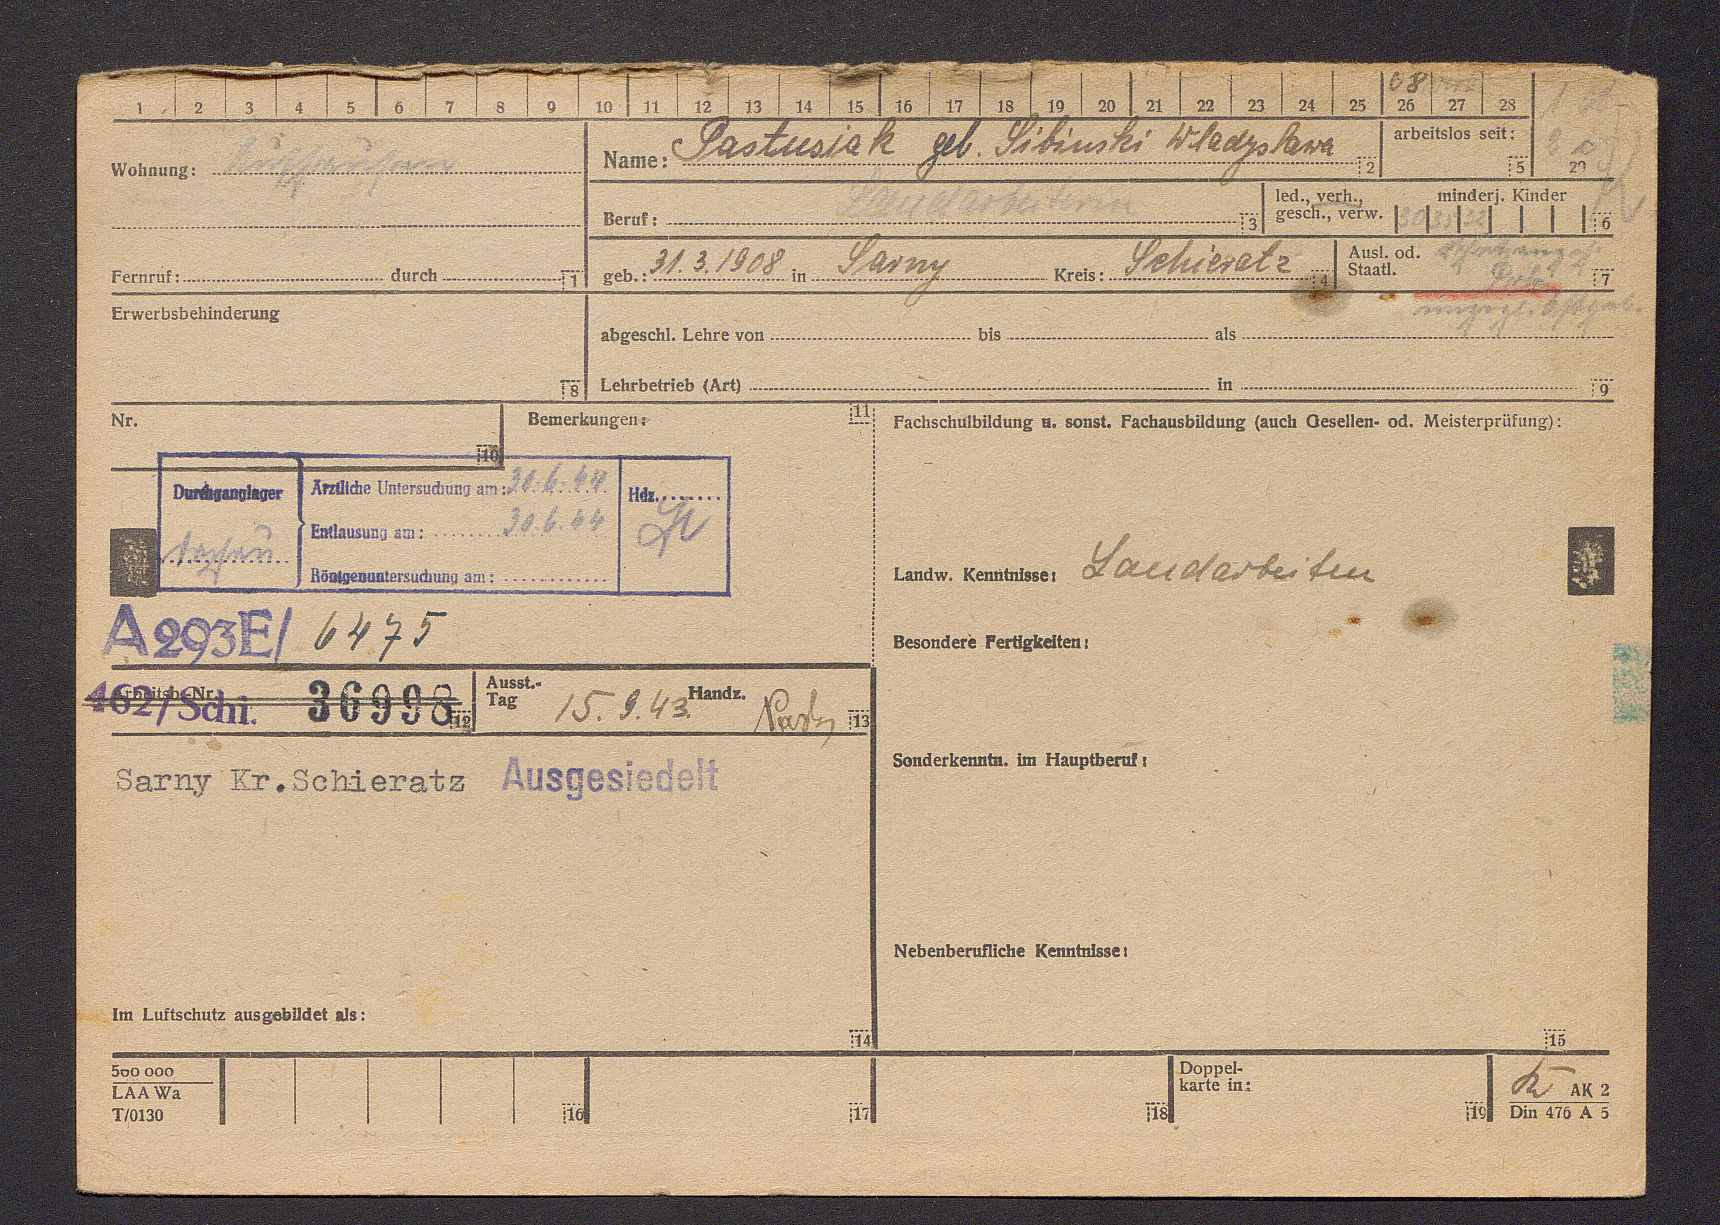 08
1 2 3 4 5 6 7 8 9 10 11 12 13 14 15 16 17 18 19 20 21 22 23 24 25 26 27 28
Wohnung:
Name: Pastusiak geb. Sibinski Wladyslawa 2
arbeitslos seit: 5
29
Beruf: Landarbeiterin 3
led., verh., gesch., verw.
minderj. Kinder
30 35 32 6
Fernruf: durch 1
geb.: 31.3.1908 in Sarny Kreis: Schieratz 4
Ausl. od. Staatl.
7
Erwerbsbehinderung
8
abgeschl. Lehre von bis als
Lehrbetrieb (Art) in 9
Nr.
10
Bemerkungen: 11
Durchganglager
Dachau
Ärztliche Untersuchung am: 30.6.44
Entlausung am: 30.6.44
Röntgenuntersuchung am:
Hdz.
A293E/ 6475
Arbeitsb. Nr.
462/Schi. 36998 12
Ausst.-Tag 15.9.43. Handz. 13
Sarny Kr.Schieratz Ausgesiedelt
Im Luftschutz ausgebildet als:
14
Fachschulbildung u. sonst. Fachausbildung (auch Gesellen- od. Meisterprüfung):
Landw. Kenntnisse: Landarbeiten
Besondere Fertigkeiten:
Sonderkenntn. im Hauptberuf:
Nebenberufliche Kenntnisse:
15
500 000
LAA Wa
T/0130
16
17
18
Doppel-
karte in:
19
AK 2
Din 476 A 5